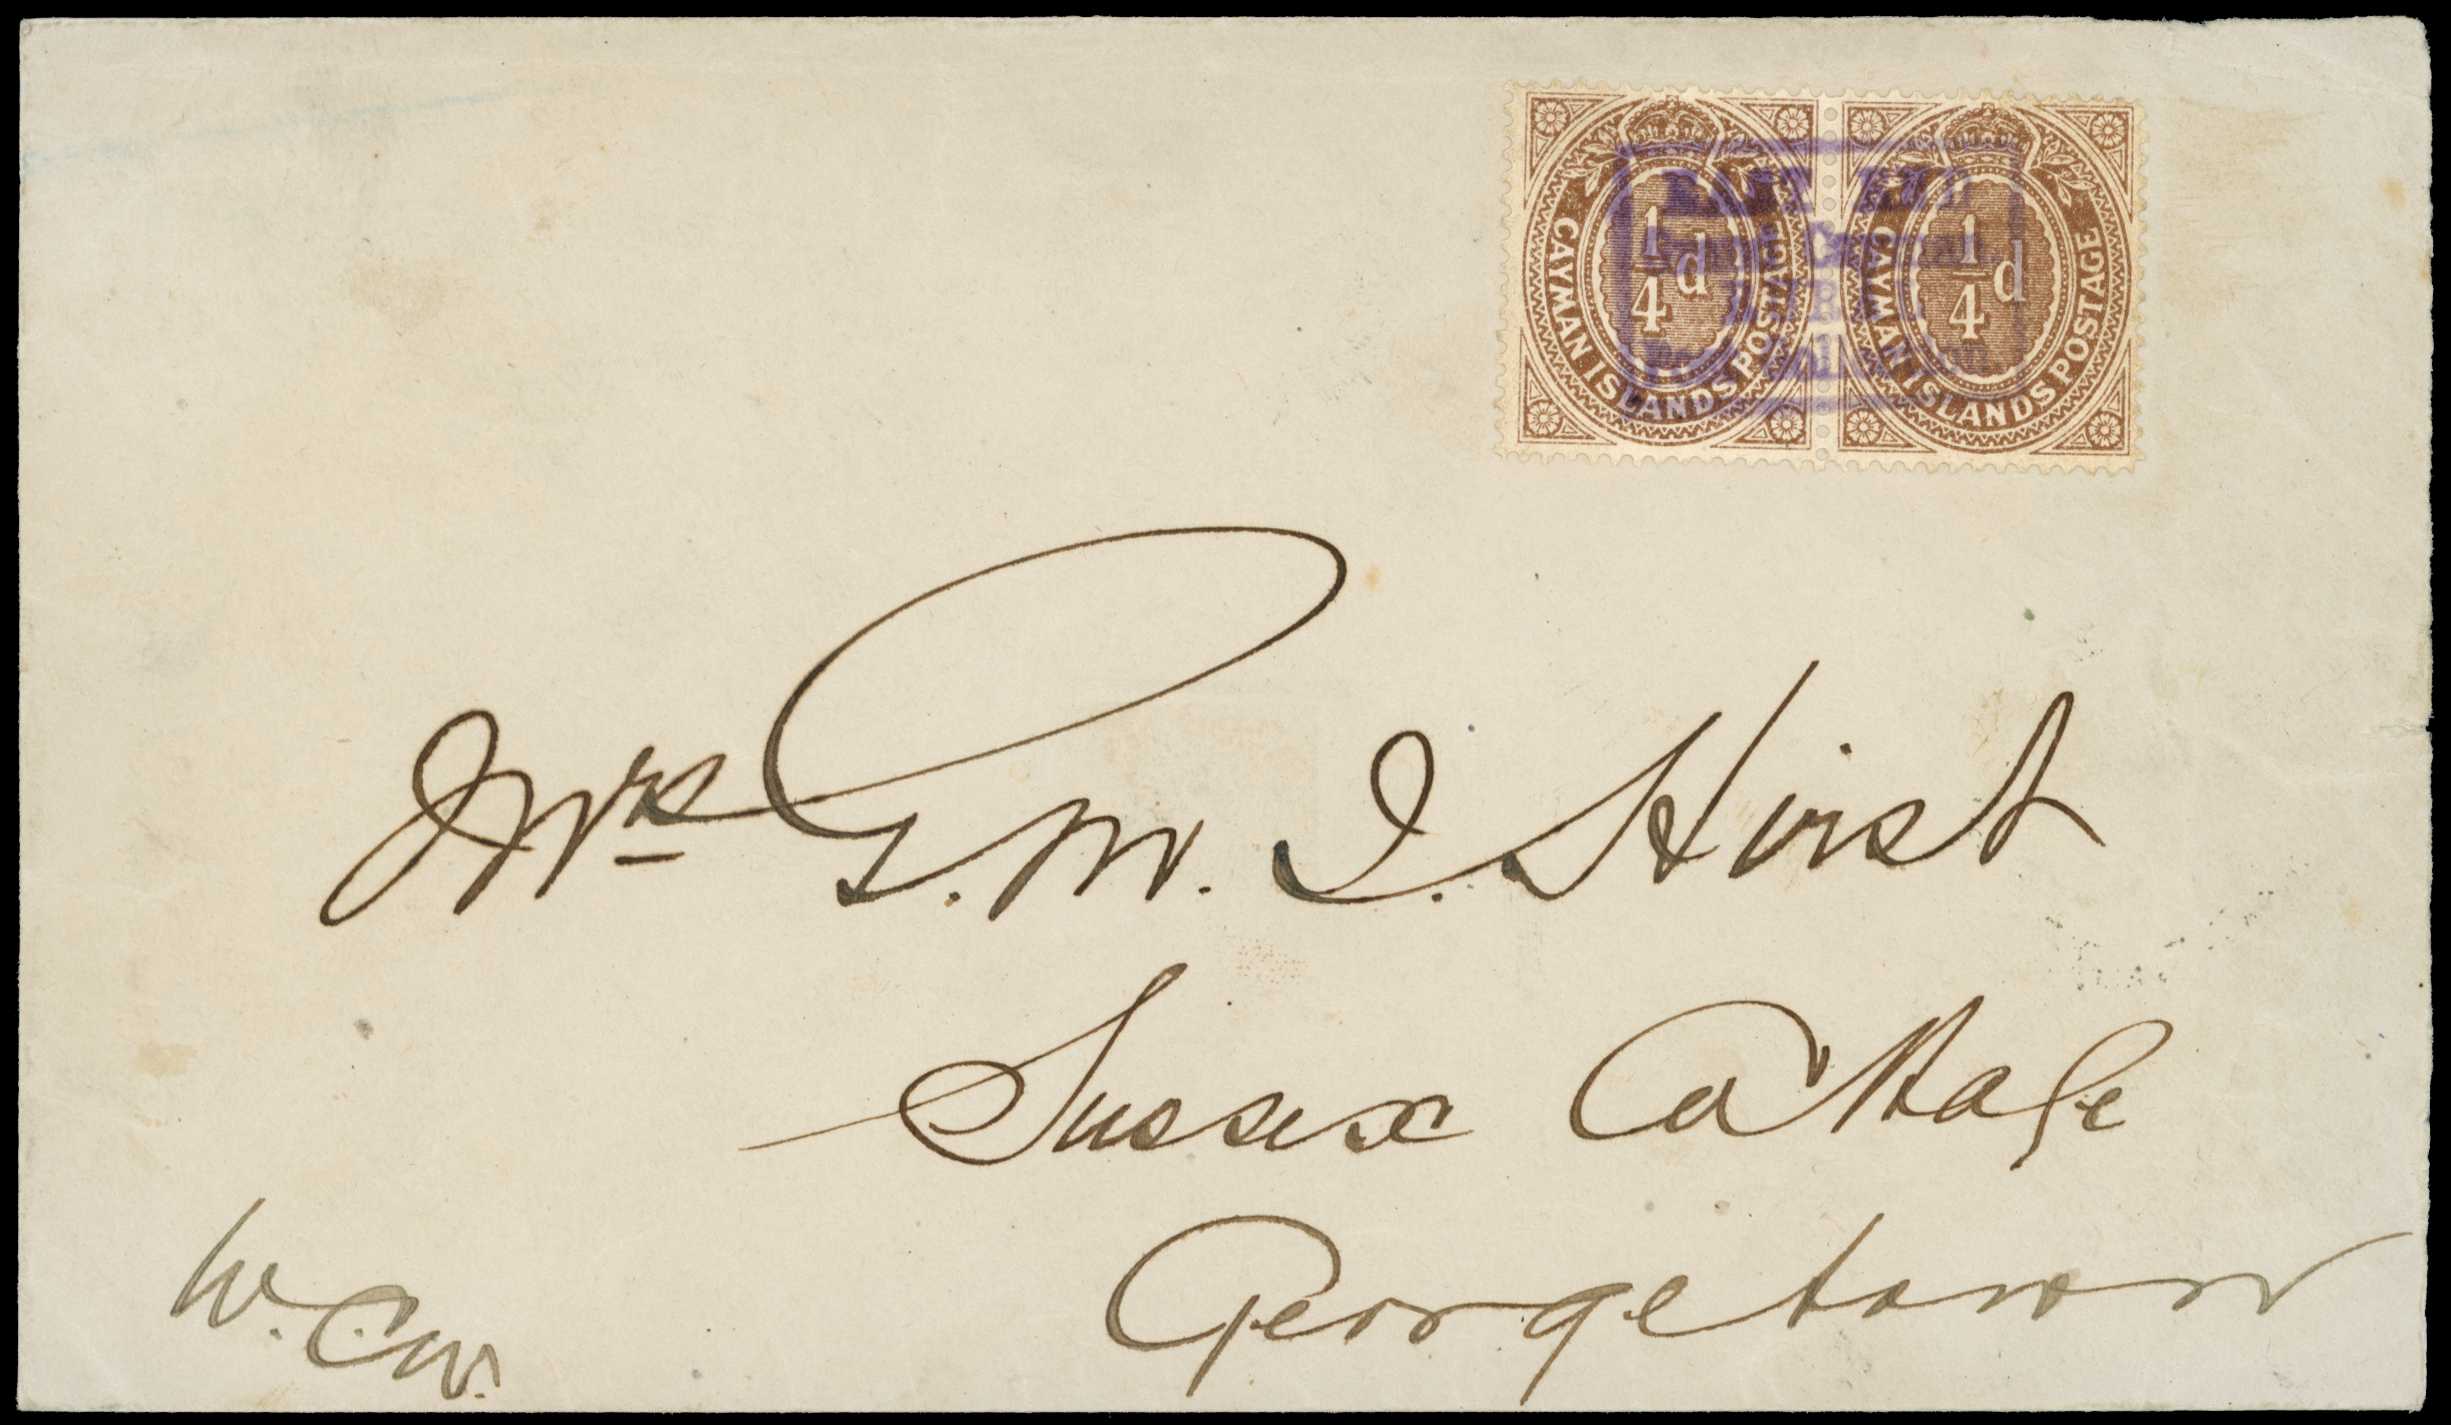 CAYMAN ISLANDS POSTAGE
1/4 d
CAYMAN ISLANDS POSTAGE
1/4 d
EAST END
Grand Cayman.
Mrs G. M. I. Hirst
Sussex Cottage
Georgetown
W.C.W.